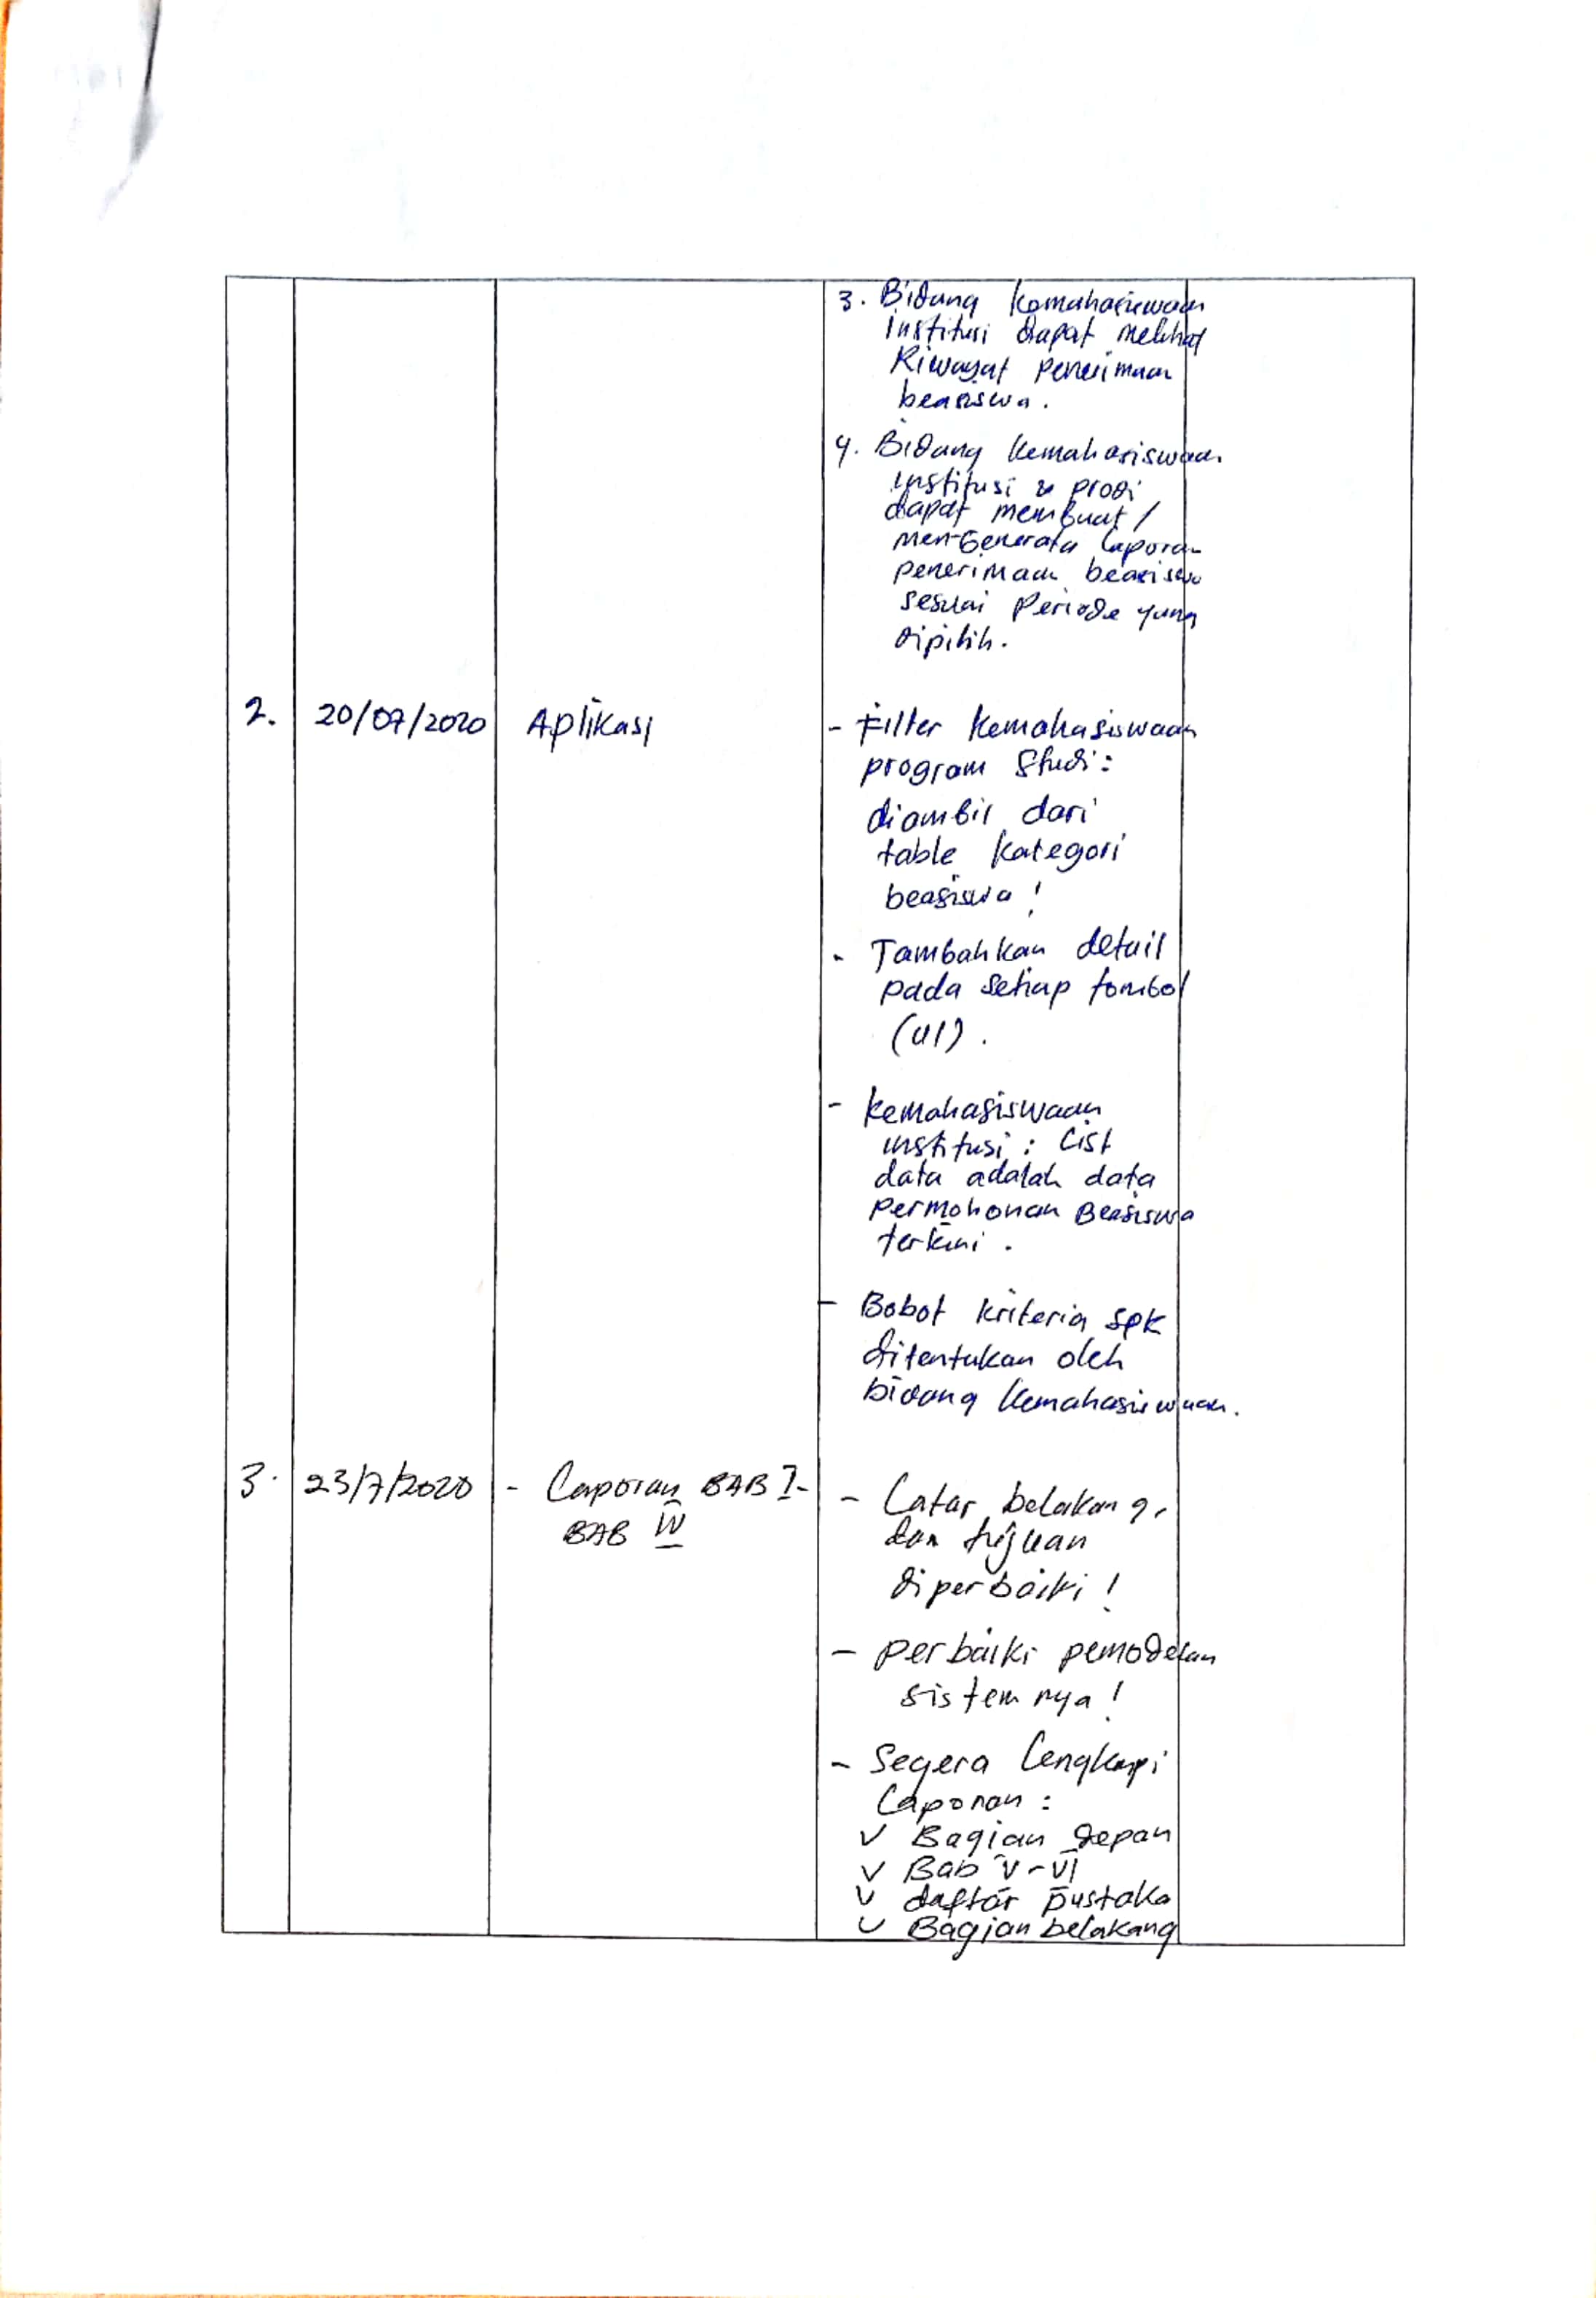 3. Bidang kemahasiswaan
Institusi dapat melihat
Riwayat penerimaan
beasiswa.
4. Bidang kemahasiswaan
institusi & prodi
dapat membuat /
men-Generate laporan
penerimaan beasiswa
sesuai Periode yang
dipilih.
2. 20/07/2020 Aplikasi - Filter kemahasiswaan
program studi:
diambil dari
table kategori
beasiswa!
- Tambahkan detail
pada setiap tombol
(UI).
- kemahasiswaan
institusi : List
data adalah data
permohonan Beasiswa
terkini.
- Bobot kriteria SPK
ditentukan oleh
bidang kemahasiswaan.
3. 23/7/2020 - Laporan BAB I - - Latar belakang,
BAB IV dan tujuan
diperbaiki!
- perbaiki pemodelan
sistemnya!
- Segera lengkapi
Laporan :
V Bagian depan
V Bab V-VI
V daftar pustaka
V Bagian belakang